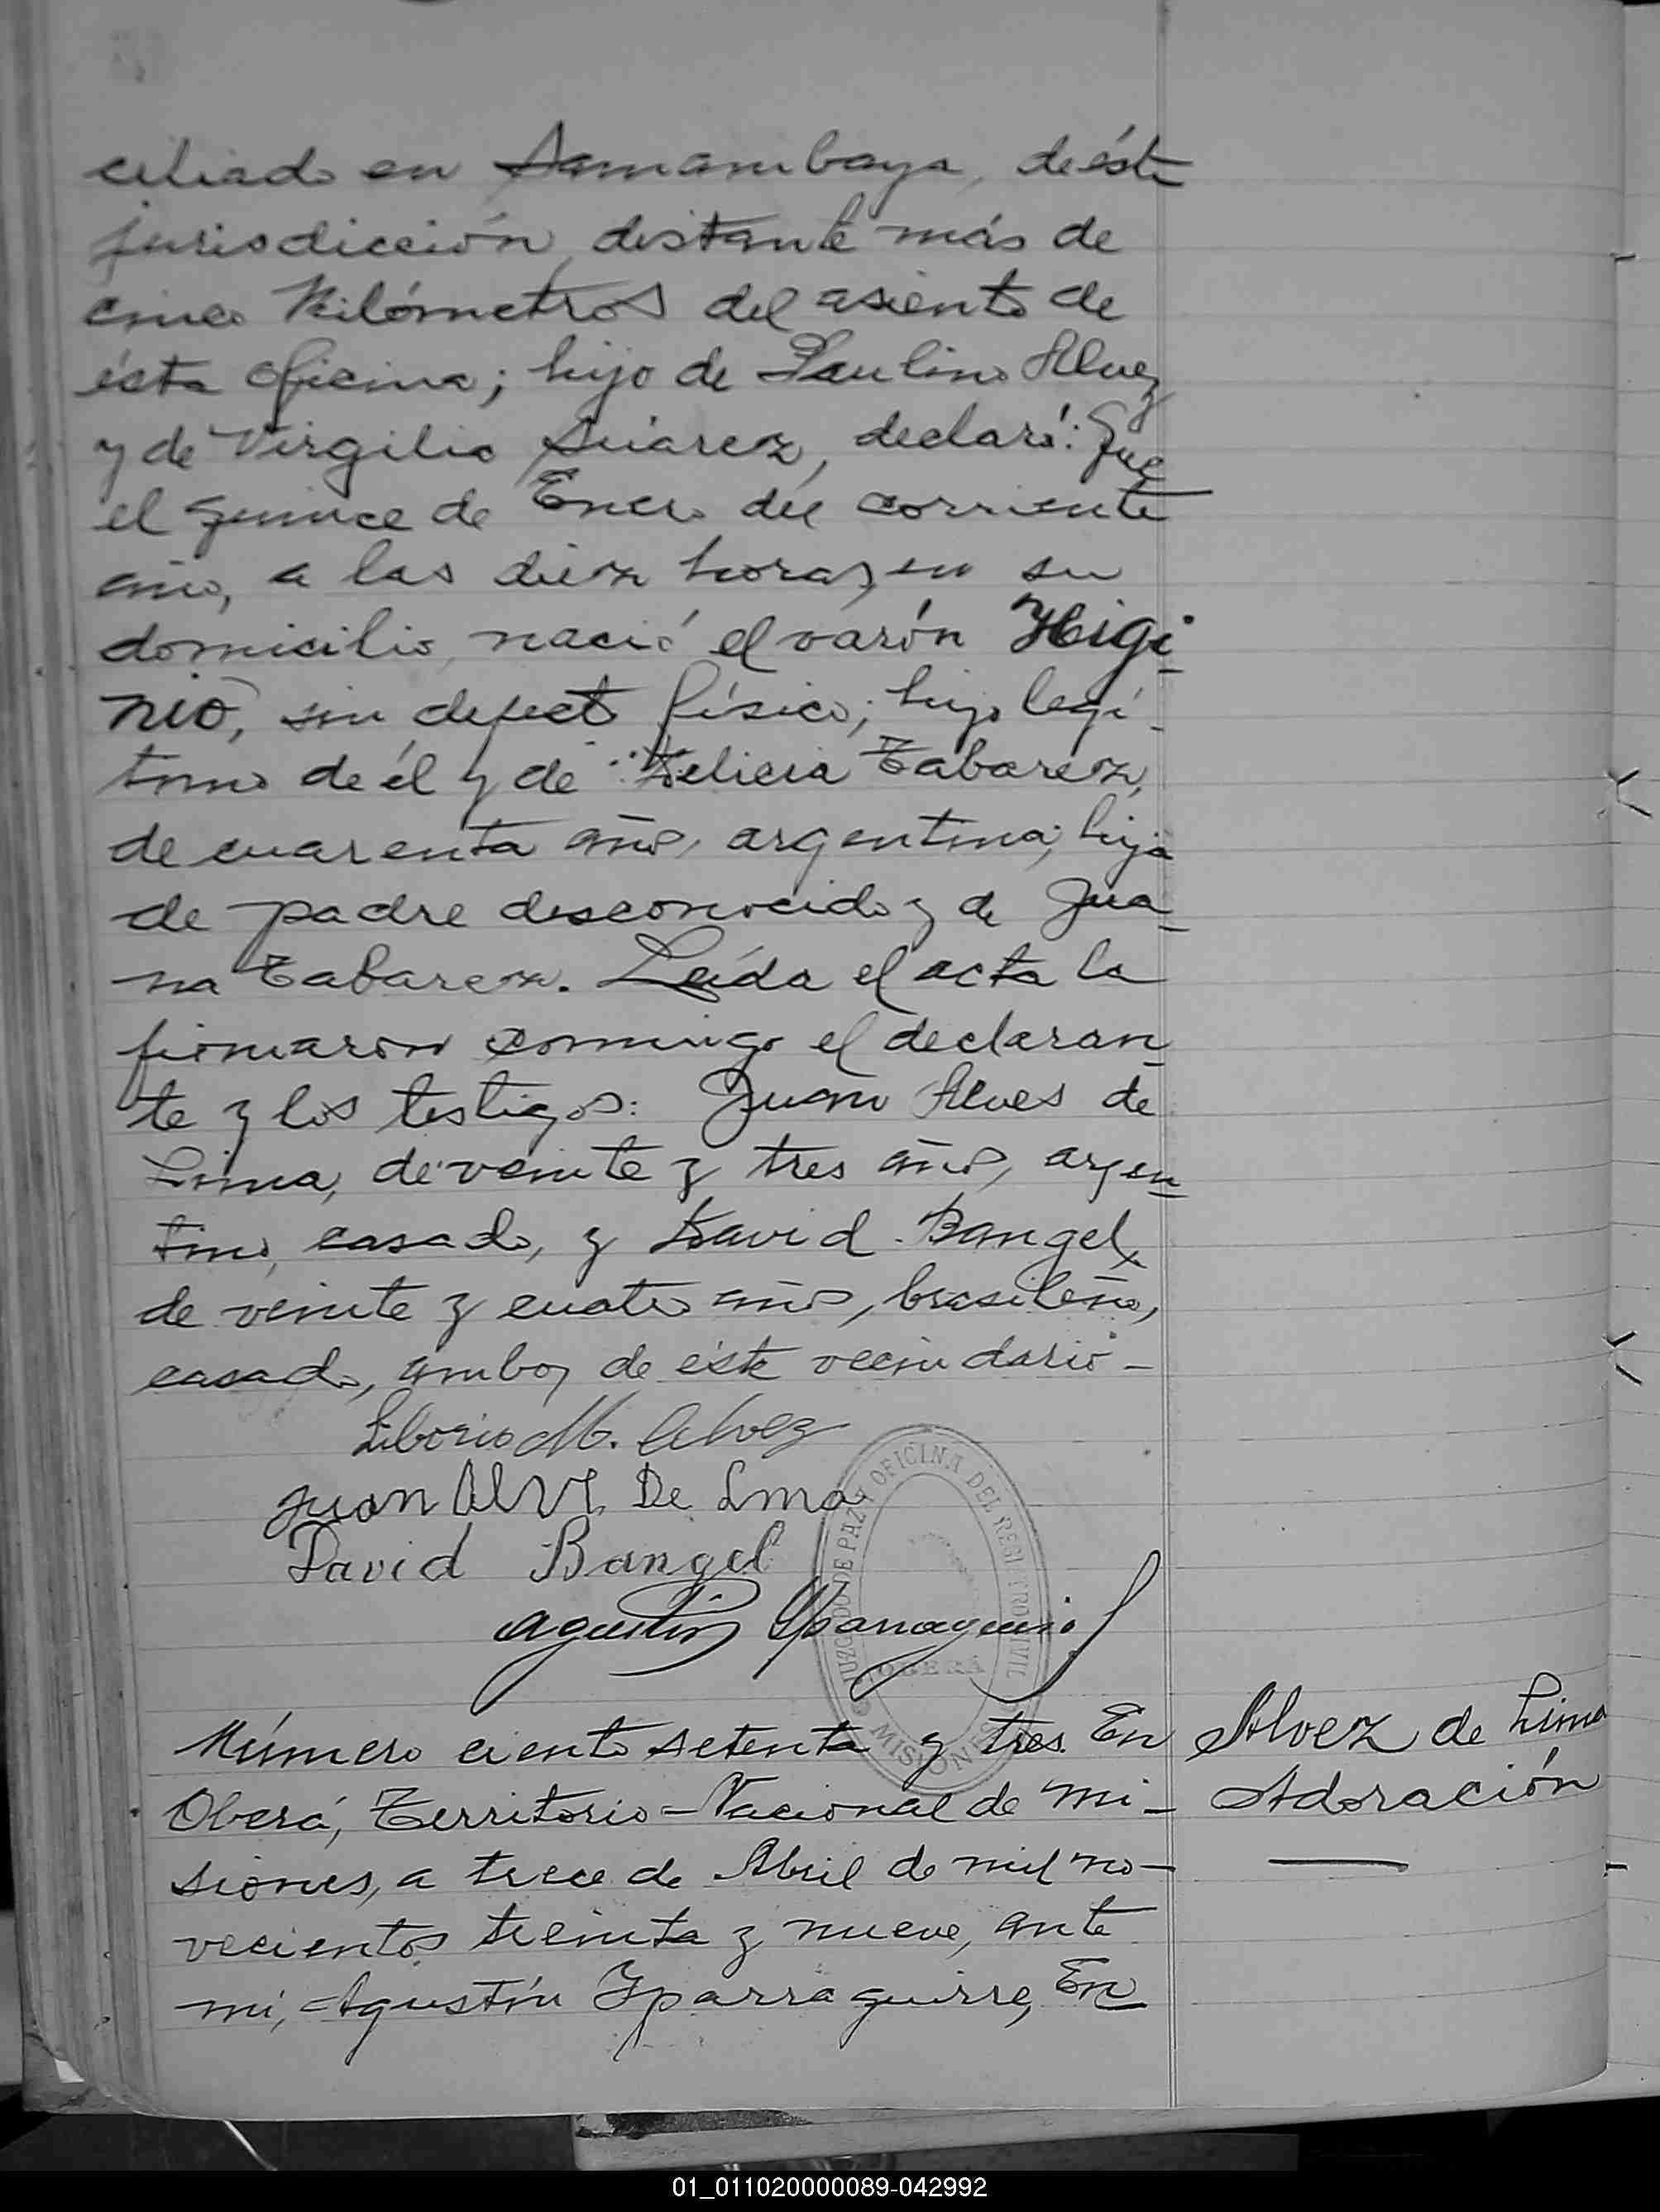 ciliado en Samambaya, de ésta
jurisdicción, distante más de
cinco Kilómetros del asiento de
ésta oficina; hijo de Paulino Alvez
y de Virgilia Suárez, declaró: Que
el quince de Enero del corriente
año, a las diez horas, en su
domicilio, nació el varón Higi-
nio, sin defecto físico; hijo legí-
timo de él y de Felicia Tabarez,
de cuarenta años, argentina; hija
de padre desconocido y de Jua-
na Tabarez. Leída el acta la
firmaron conmigo el declaran-
te y los testigos: Juan Alves de
Lima, de veinte y tres años, argen-
tino, casado, y David Bangel,
de veinte y cuatro años, brasileño,
casado, ambos de éste vecindario-
Liborio M. Alvez
Juan Alvz De Lma
David Bangel
Agustín Yparraguirre
JUZGADO DE PAZ Y OFICINA DEL REGISTRO CIVIL
OBERÁ
MISIONES
Número ciento setenta y tres. En
Oberá, Territorio-Nacional de Mi-
siones, a trece de Abril de mil no-
vecientos treinta y nueve, ante
mí, Agustín Yparraguirre, En
Alvez de Lima
Adoración
01_011020000089-042992